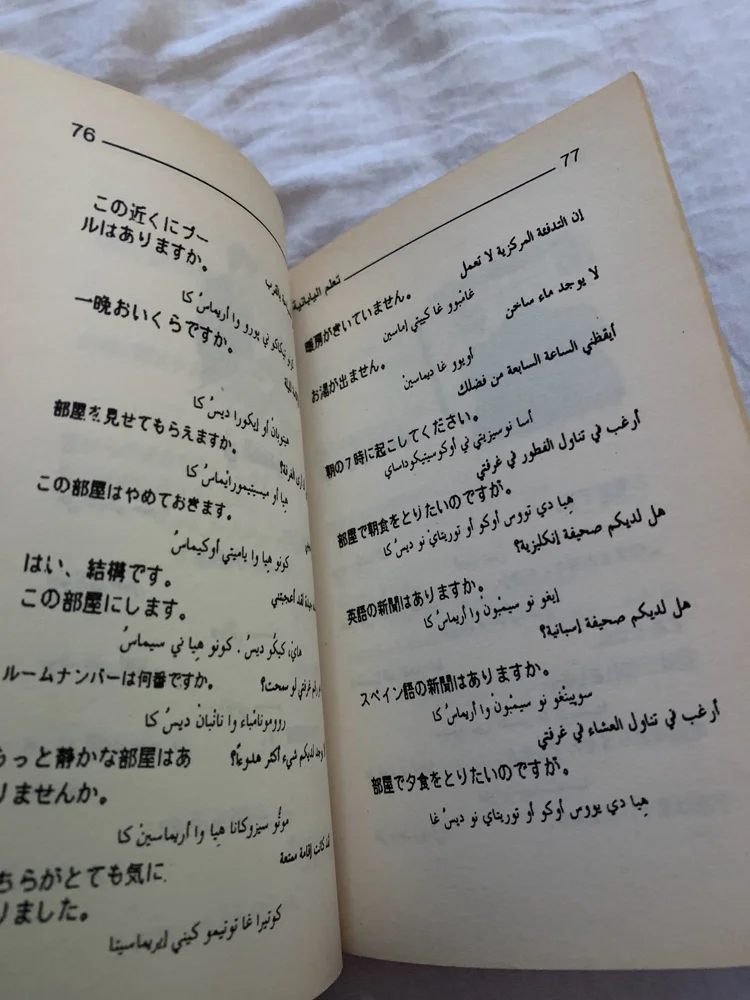 76
この近くにプー
ルはありますか。
كا
أريماسُ
وا
يورو
ني
一晩おいくらですか。
هيتوبانْ أو إيكورا ديسُ كا
部屋を見せてもらえますか。
هِيا أو ميسيتيمورايْماسُ كا
この部屋はやめておきます。
كونو هِيا وا ياميتي أوكيماسُ
لقد أعجبتني
はい、結構です。
この部屋にします。
هايْ، كيكُو ديسُ . كونو هِيا ني سيماسُ
غرفتي لو سمحت؟
ルームナンバーは何番ですか。
روومونامْباء وا نانْبانْ ديسُ كا
لديكم شيء أكثر هدوءاً؟
もっと静かな部屋はあ
りませんか。
موتُو سيزوكانا هِيا وا أريماسينْ كا
كانت إقامة ممتعة
ちらがとても気に
りました。
كوتيرا غا توتيمو كيني إيريماسيتا
77
تعلم اليابانية
إن التدفئة المركزية لا تعمل
暖房がきいていません。
غامْبوو غا كيتي إماسين
لا يوجد ماء ساخن
お湯が出ません。
أويوو غا ديماسينْ
أيقظني الساعة السابعة من فضلك
朝の7時に起こしてください。
أسا نوسيزيتي ني أوكوسيتيكوداساي
أرغب في تناول الفطور في غرفتي
部屋で朝食をとりたいのですが。
هِيا دي تووس أوكو أو توريتايْ نو ديسُ كا
هل لديكم صحيفة إنكليزية؟
英語の新聞はありますか。
إيغو نو سيمْبونْ وا أريماسُ كا
هل لديكم صحيفة إسبانية؟
スペイン語の新聞はありますか。
سوپينْغو نو سيمْبونْ وا أريماسُ كا
أرغب في تناول العشاء في غرفتي
部屋で夕食をとりたいのですが。
هِيا دي يووس أوكو أو توريتاي نو ديسُ غا